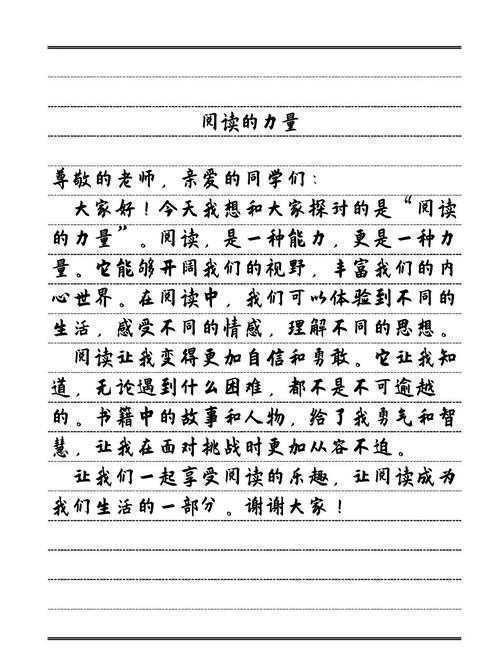 阅读的力量
尊敬的老师，亲爱的同学们：
大家好！今天我想和大家探讨的是“阅读
的力量”。阅读，是一种能力，更是一种力
量。它能够开阔我们的视野，丰富我们的内
心世界。在阅读中，我们可以体验到不同的
生活，感受不同的情感，理解不同的思想。
阅读让我变得更加自信和勇敢。它让我知
道，无论遇到什么困难，都不是不可逾越
的。书籍中的故事和人物，给了我勇气和智
慧，让我在面对挑战时更加从容不迫。
让我们一起享受阅读的乐趣，让阅读成为
我们生活的一部分。谢谢大家！